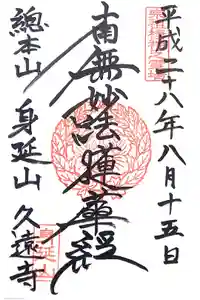 平成二十八年八月十五日
南無妙法蓮華経
總本山 身延山 久遠寺